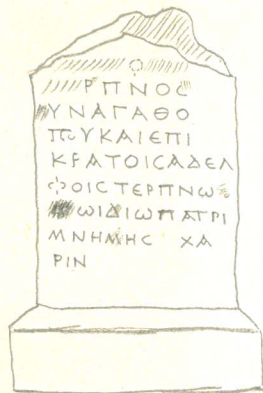 ΡΠΝΟϹ
ΥΝΑΓΑΘΟ
ΠΟΥΚΑΙΕΠΙ
ΚΡΑΤΟΙϹΑΔΕΛ
ΦΟΙϹΤΕΡΠΝΩ
ΩΙΔΙΩΠΑΤΡΙ
ΜΝΗΜΗϹ ΧΑ
ΡΙΝ